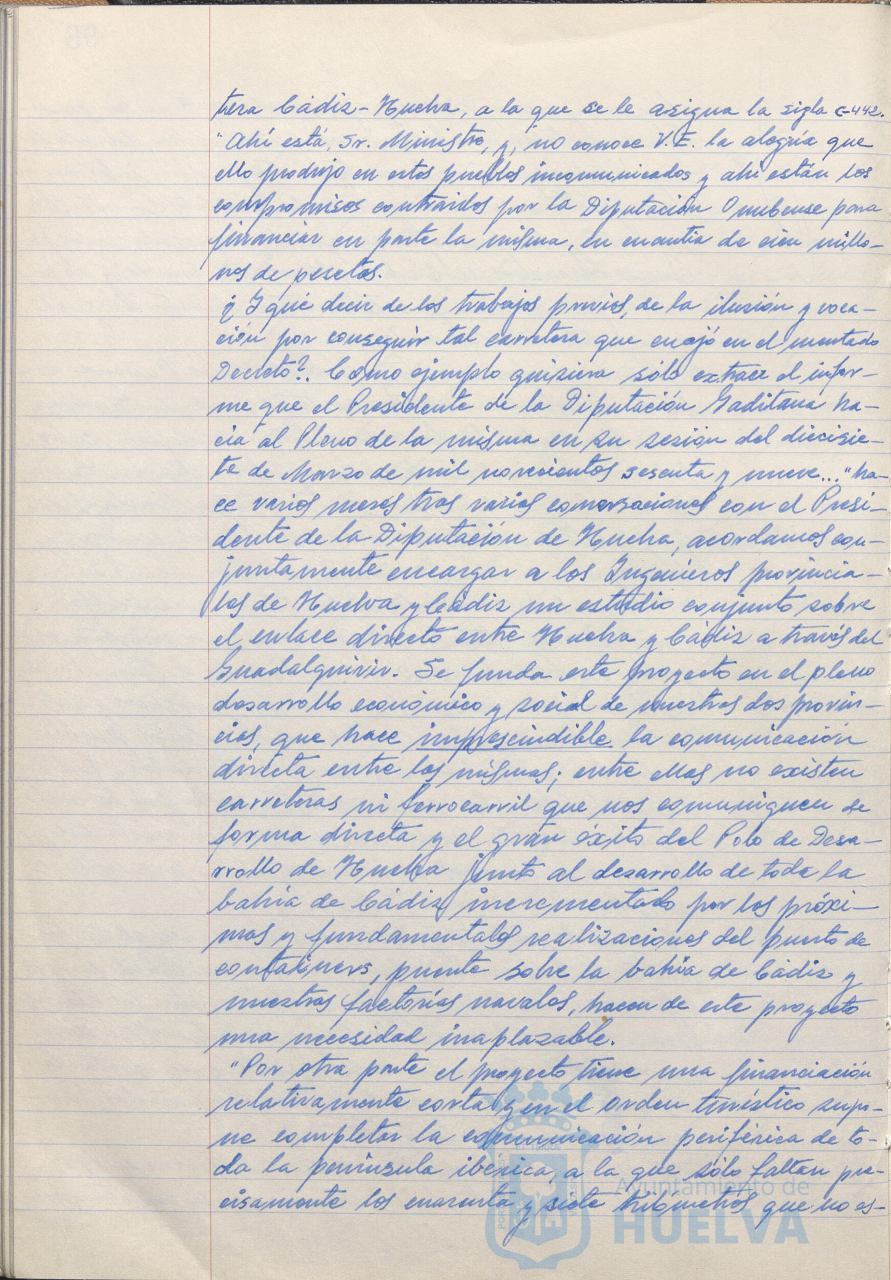 tera Cádiz-Huelva, a la que se le asigna la sigla C-442.
"Ahí está, Sr. Ministro, y, no conoce V.E. la alegría que
ello produjo en estos pueblos incomunicados y ahí están los
compromisos contraidos por la Diputación Onubense para
financiar en parte la misma, en cuantia de cien millo-
nes de pesetas.
¿Y qué decir de los trabajos previos, de la ilusión y voca-
ción por conseguir tal carretera que encajó en el mentado
Decreto?. Como ejemplo quisiera sólo extraer el infor-
me que el Presidente de la Diputación Gaditana ha-
cia al Pleno de la misma en su sesión del diecisie-
te de Marzo de mil novecientos sesenta y nueve... "ha-
ce varios meses tras varias conversaciones con el Presi-
dente de la Diputación de Huelva, acordamos con-
juntamente encargar a los Ingenieros provincia-
les de Huelva y Cádiz un estudio conjunto sobre
el enlace directo entre Huelva y Cádiz a través del
Guadalquivir. Se funda este proyecto en el pleno
desarrollo económico y social de nuestras dos provin-
cias, que hace imprescindible la comunicación
directa entre las mismas; entre ellas no existen
carreteras ni ferrocarril que nos comuniquen de
forma directa y el gran éxito del Polo de Desa-
rrollo de Huelva junto al desarrollo de toda la
bahía de Cádiz, incrementado por las próxi-
mas y fundamentales realizaciones del puerto de
containers, puente sobre la bahía de Cádiz y
nuestras factorías navales, hacen de este proyecto
una necesidad inaplazable.
"Por otra parte el proyecto tiene una financiación
relativamente corta y en el orden turístico supo-
ne completar la comunicación periférica de to-
da la península ibérica, a la que sólo faltan pre-
cisamente los cuarenta y siete kilómetros que no es-
Ayuntamiento de
HUELVA